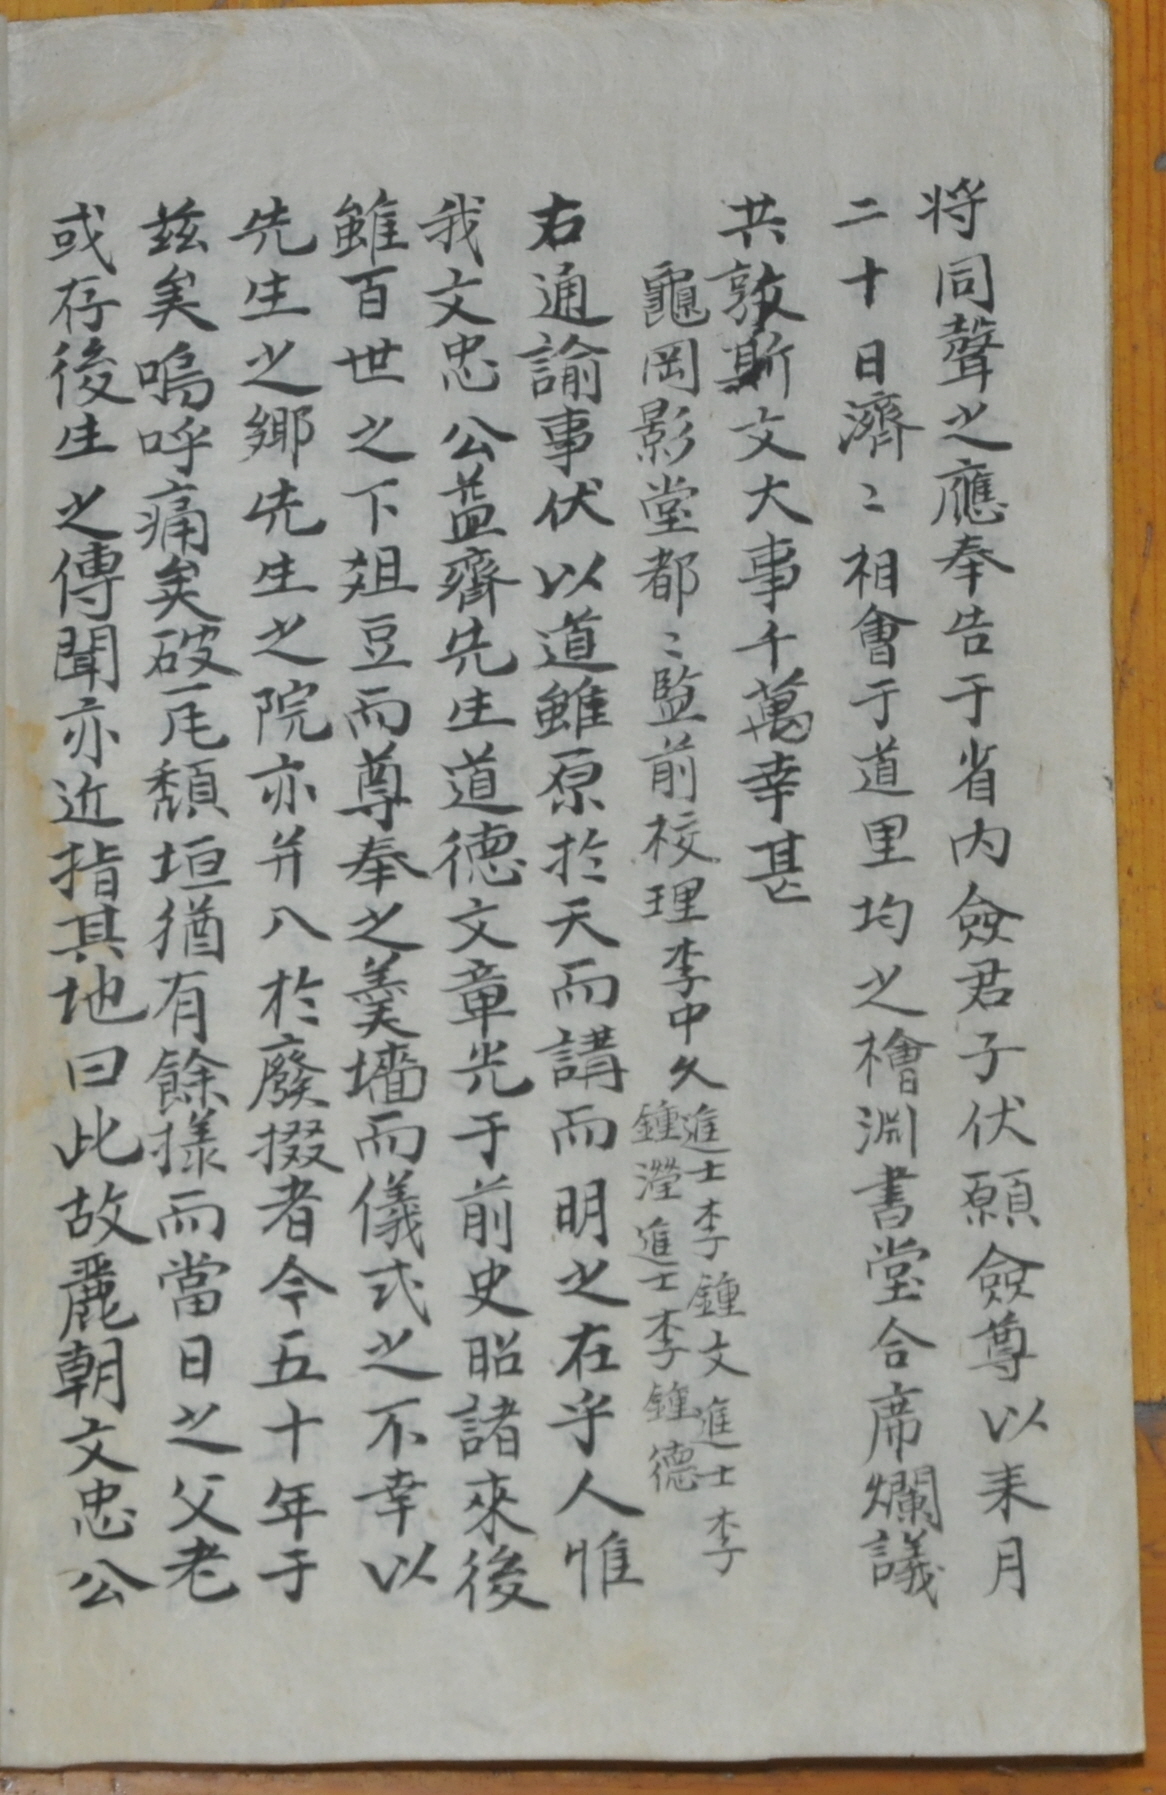 將同聲之應奉告于省内僉君子伏願僉尊以来月
二十日濟〻相會于道里均之檜淵書堂合席爛議
共敦斯文大事千萬幸甚
龜岡影堂都〻監前校理李中久
進士李鍾文進士李
鍾瀅進士李鍾德
右通諭事伏以道雖原於天而講而明之在乎人惟
我文忠公益齋先生道德文章光于前史昭諸來後
雖百世之下俎豆而尊奉之羹墻而儀式之不幸以
先生之鄉先生之院亦并入於廢掇者今五十年于
玆矣嗚呼痛矣破瓦頹垣猶有餘㨾而當日之父老
或存後生之傳聞亦近指其地曰此故麗朝文忠公